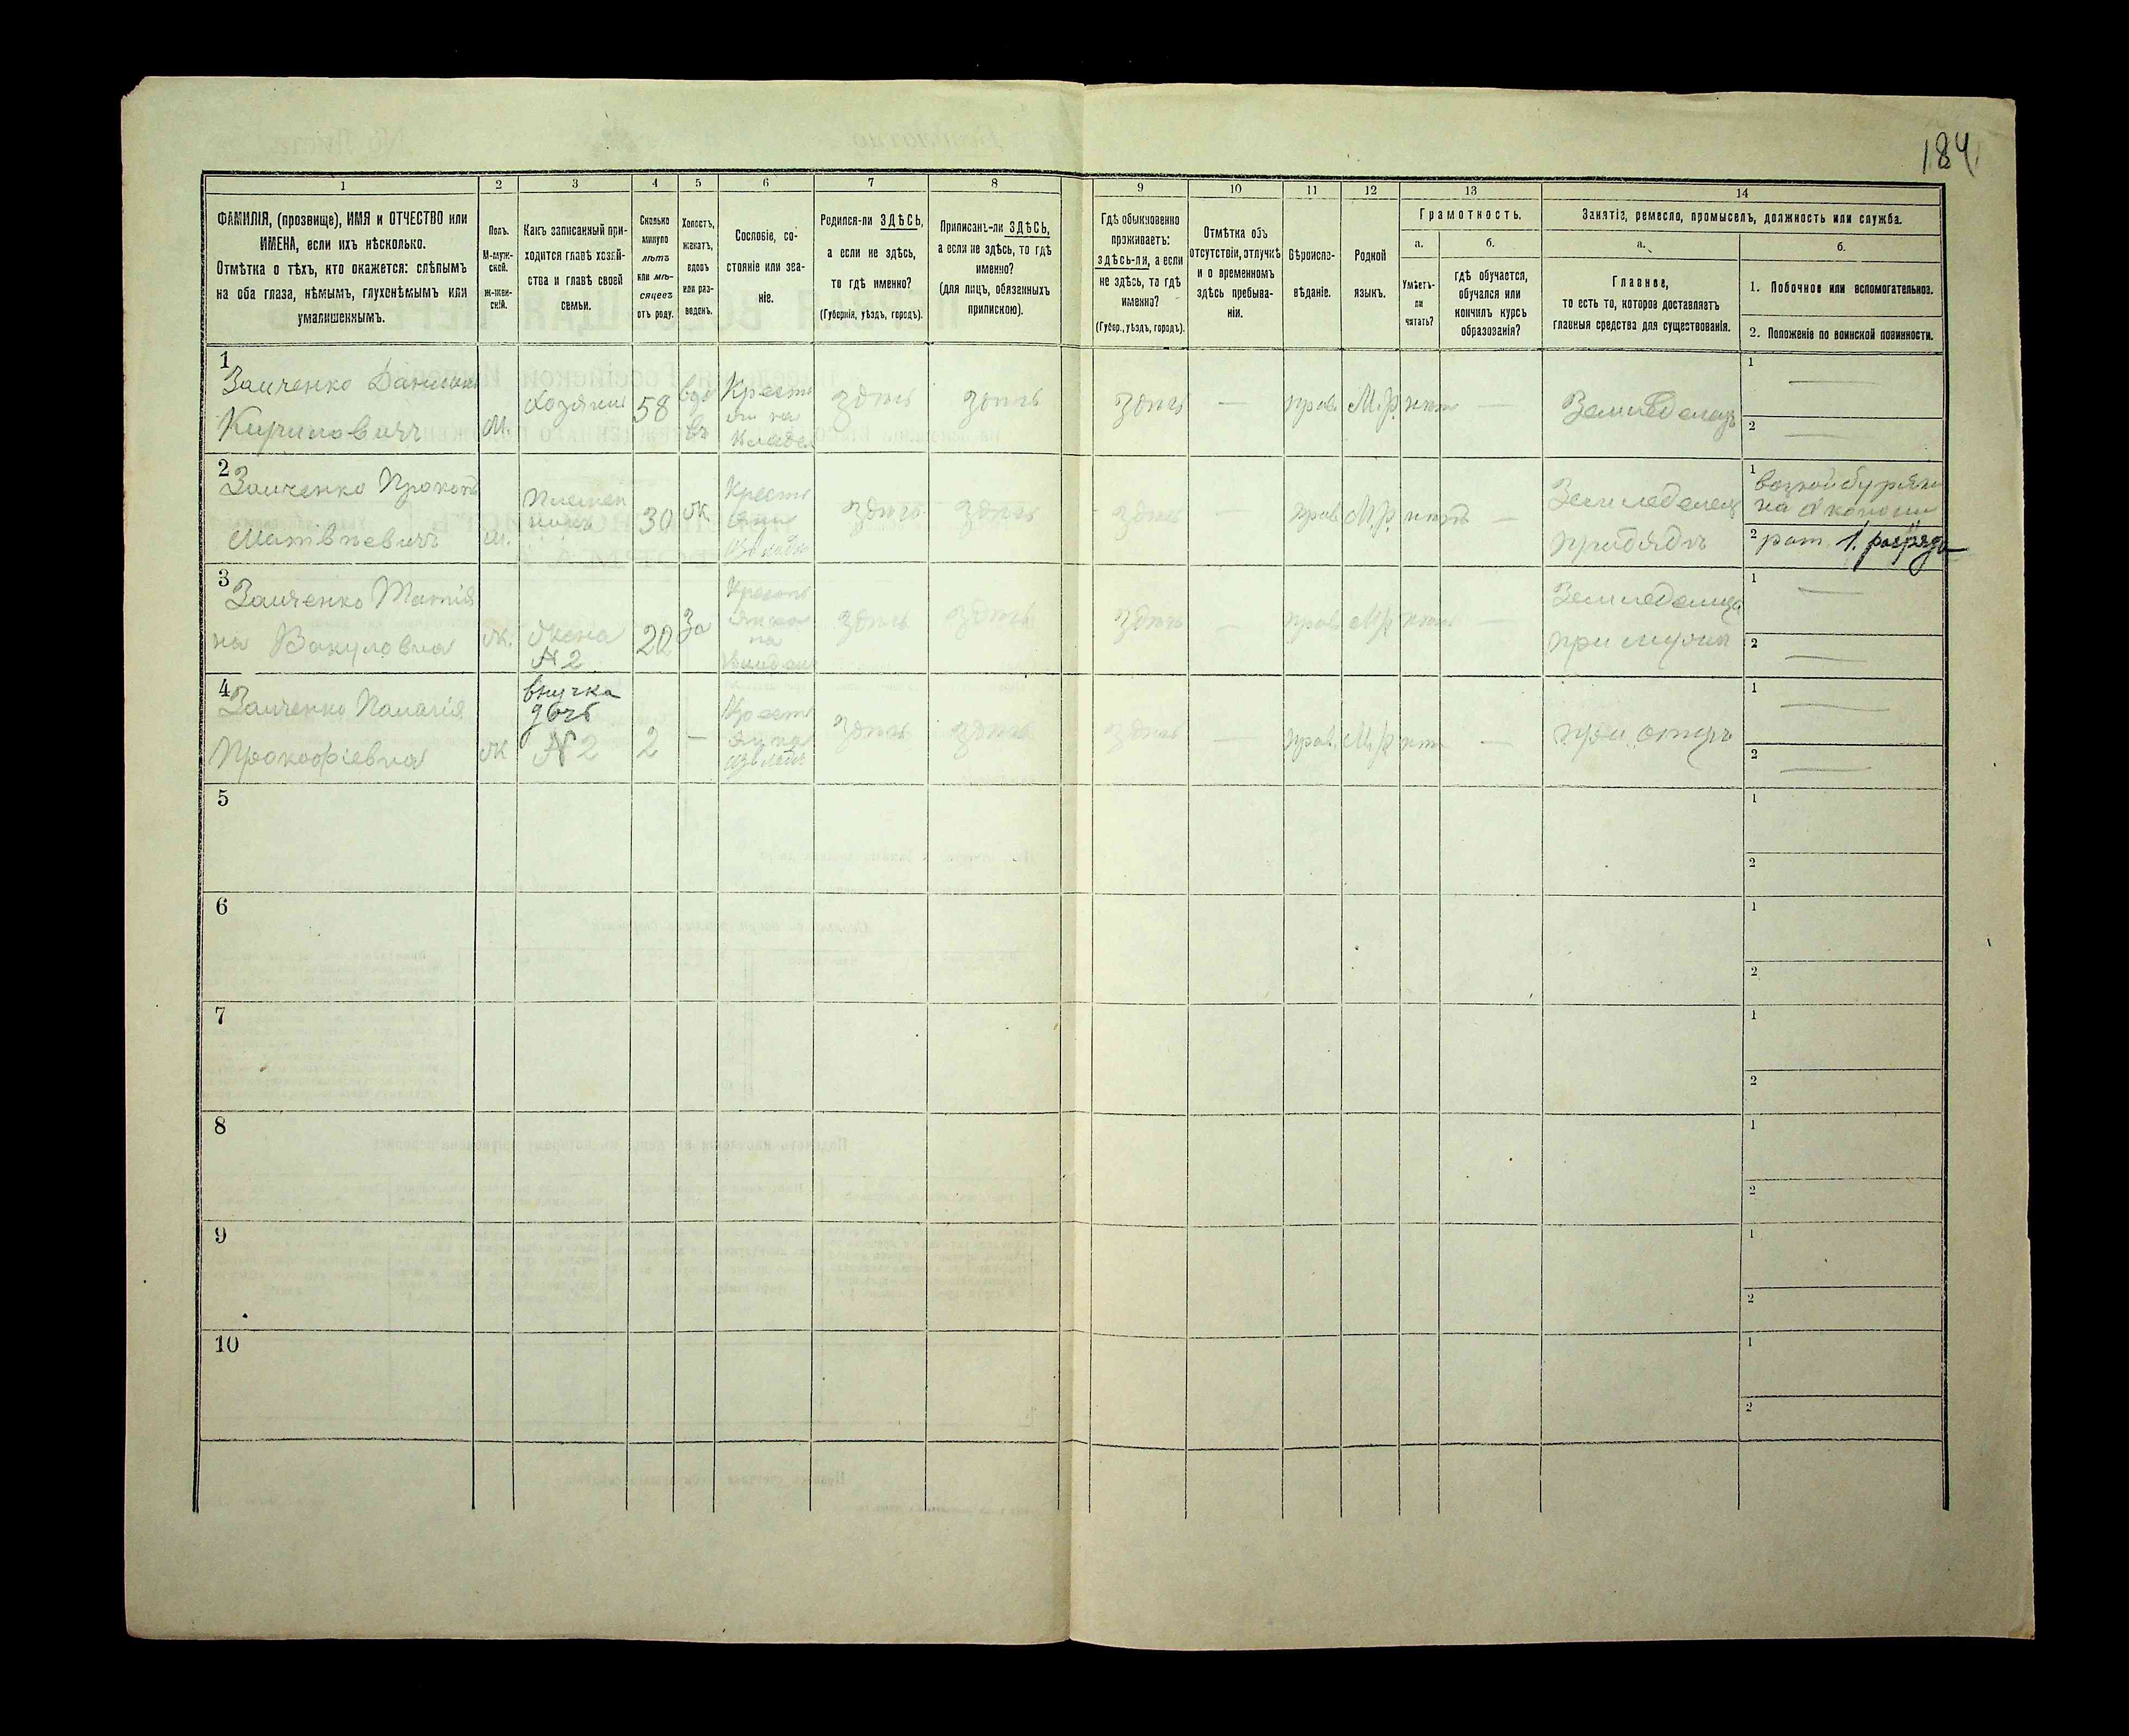 184
1
2
3
4
5
6
7
8
9
10
11
12
13
14
ФАМИЛІЯ, (прозвище), ИМЯ и ОТЧЕСТВО или
ИМЕНА, если ихъ нѣсколько.
Отмѣтка о тѣхъ, кто окажется: слѣпымъ
на оба глаза, нѣмымъ, глухонѣмымъ или
умалишеннымъ.
Полъ.
М-муж-
ской.
ж-жен-
скій.
Какъ записанный при-
ходится главѣ хозяй-
ства и главѣ своей
семьи.
Сколько
минуло
лѣтъ
или мѣ-
сяцевъ
отъ роду.
Холостъ,
женатъ,
вдовъ
или раз-
веденъ.
Сословіе, со-
стояніе или зва-
ніе.
Родился-ли ЗДѢСЬ,
а если не здѣсь,
то гдѣ именно?
(Губернія, уѣздъ, городъ).
Приписанъ-ли ЗДѢСЬ,
а если не здѣсь, то гдѣ
именно?
(для лицъ, обязанныхъ
припискою).
Гдѣ обыкновенно
проживаетъ:
здѣсь-ли, а если
не здѣсь, то гдѣ
именно?
(Губер., уѣздъ, городъ).
Отмѣтка объ
отсутствіи, отлучкѣ
и о временномъ
здѣсь пребыва-
ніи.
Вѣроиспо-
вѣданіе.
Родной
языкъ.
Грамотность.
а.
б.
Умѣетъ-
ли
читать?
гдѣ обучается,
обучался или
кончилъ курсъ
образованія?
Занятіе, ремесло, промыселъ, должность или служба.
а.
б.
Главное,
то есть то, которое доставляетъ
главныя средства для существованія.
1. Побочное или вспомогательное.
2. Положеніе по воинской повинности.
1
Заиченко
Кириловичъ
М.
Хозяинъ
58
вдо
въ
Крестя
здѣсь
здѣсь
здѣсь
—
прав.
М.р.
нѣтъ
—
Земледелецъ
1
—
2
—
2
Заиченко Прокопъ
М.
Племен
никъ
30
ж
Крестя
здѣсь
здѣсь
здѣсь
—
прав.
М.р.
нѣтъ
—
Земледелецъ
при дядѣ
1
на
2 рат. 1. разряда
3
Заиченко Татія
на Вакуловна
ж.
жена
№ 2
22
За
Крестя
янка
на
здѣсь
здѣсь
здѣсь
—
прав.
М.р.
нѣтъ
—
Земледелица
при мужѣ
1
—
2
—
4
Заиченко Палагія
Прокофіевна
ж
внучка
дочь
№ 2
2
—
Крестя
здѣсь
здѣсь
здѣсь
—
прав.
М.р.
нѣтъ
—
при отцѣ
1
—
2
—
5
1
2
6
1
2
7
1
2
8
1
2
9
1
2
10
1
2